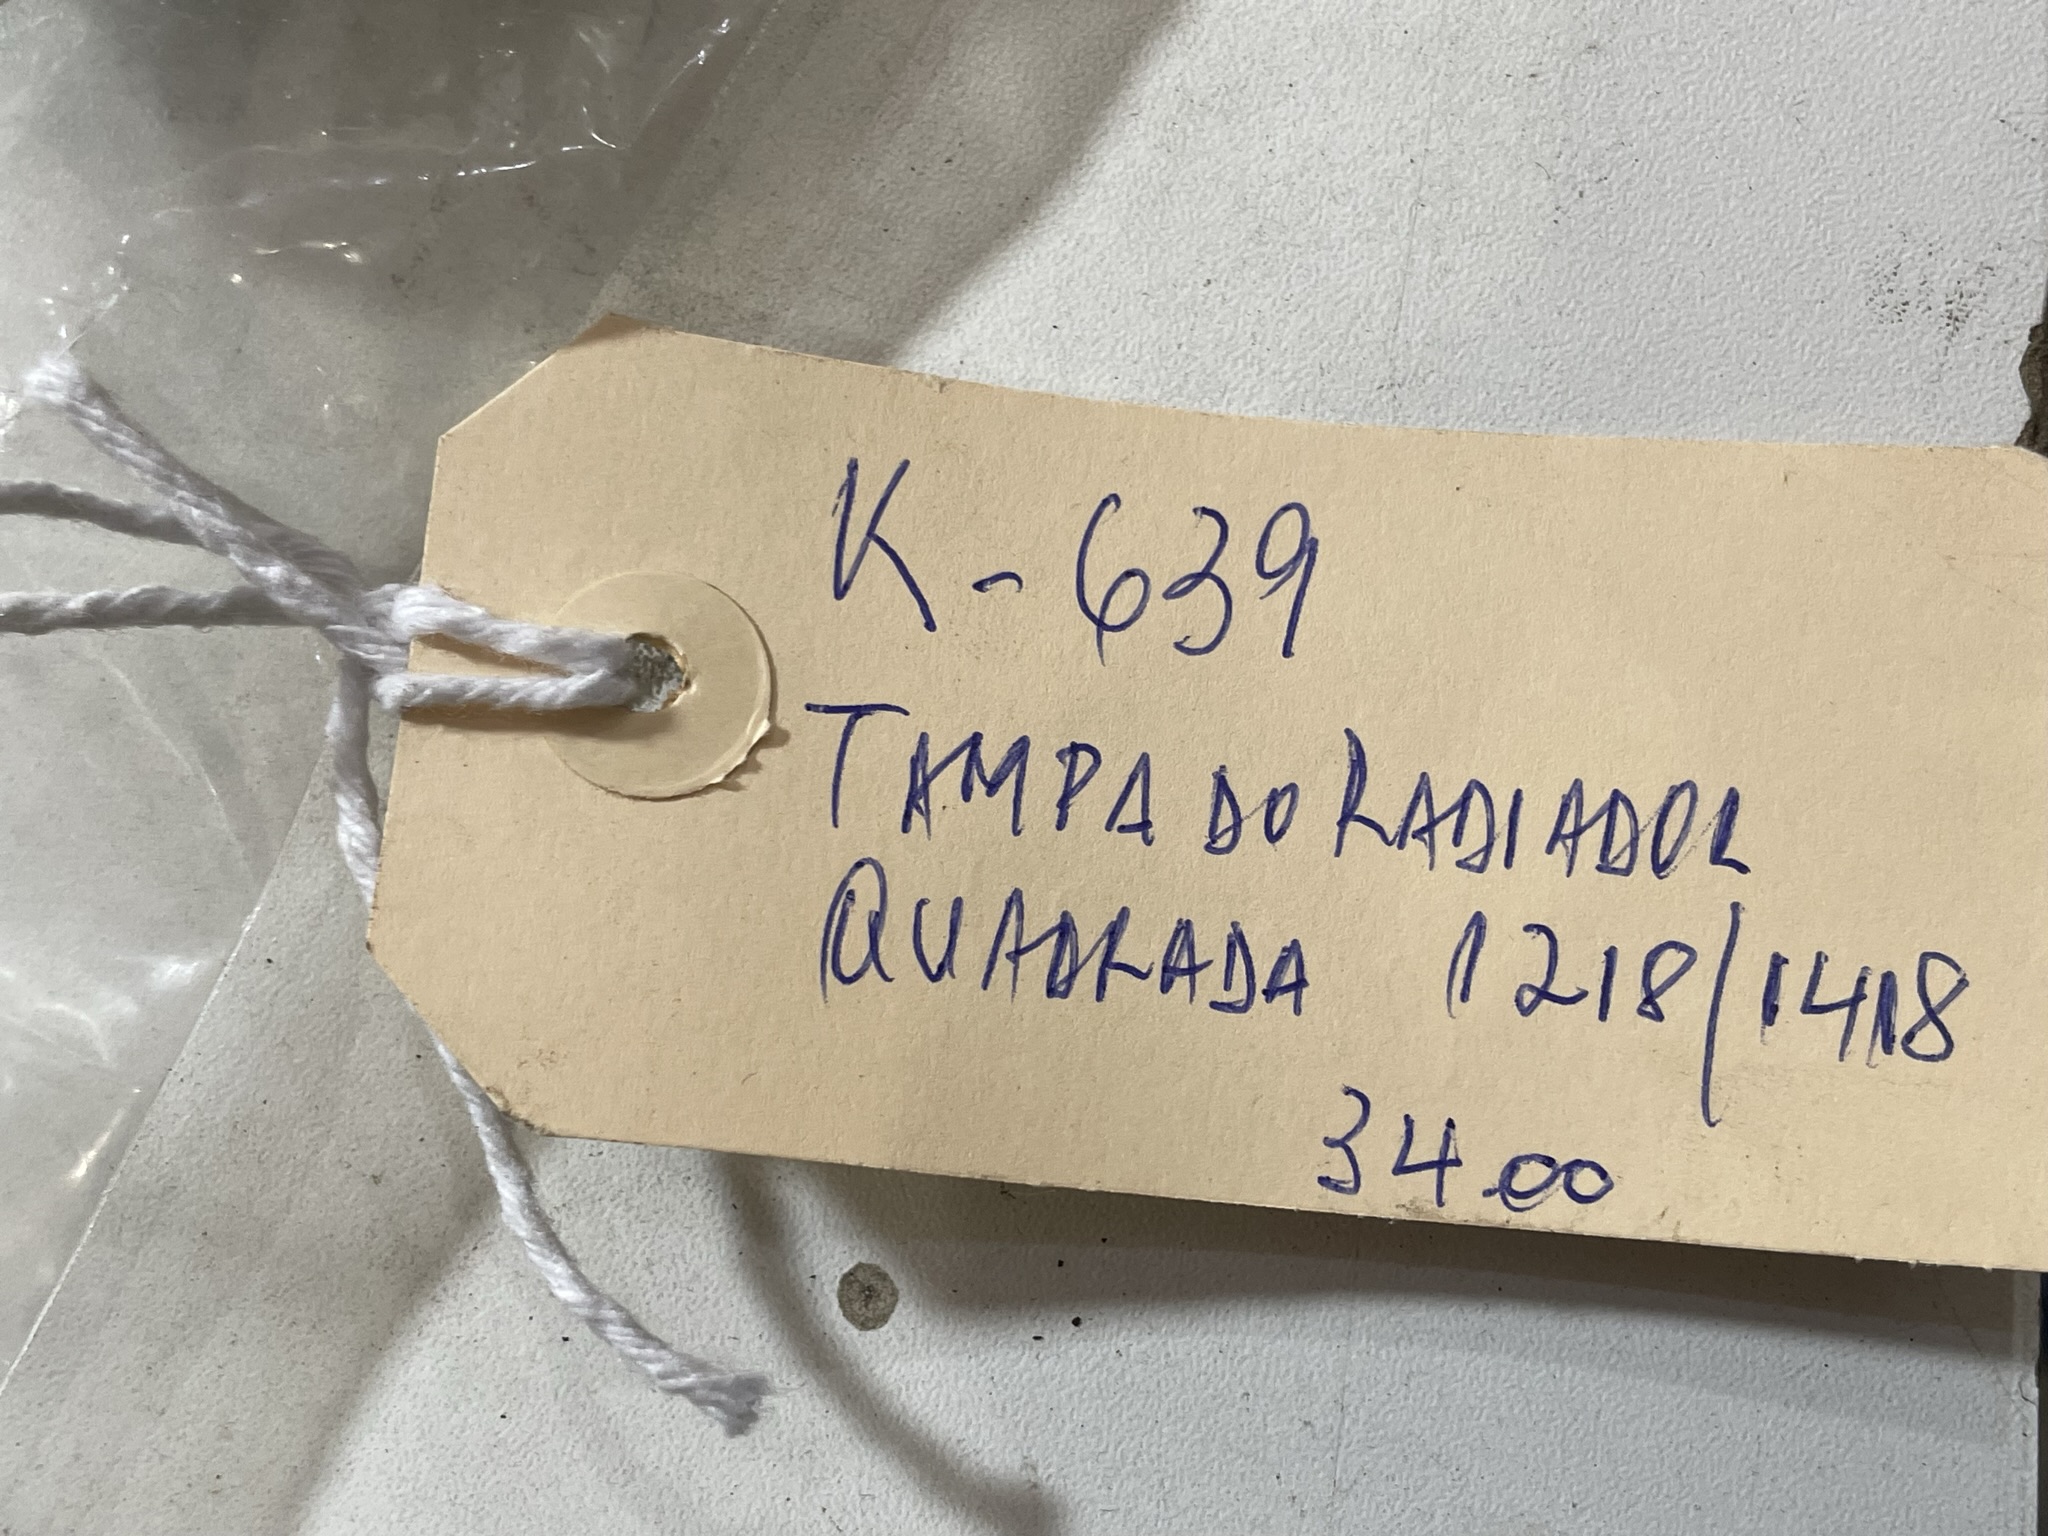 K-639
TAMPA DO RADIADOR
QUADRADA 1218/1418
34.00